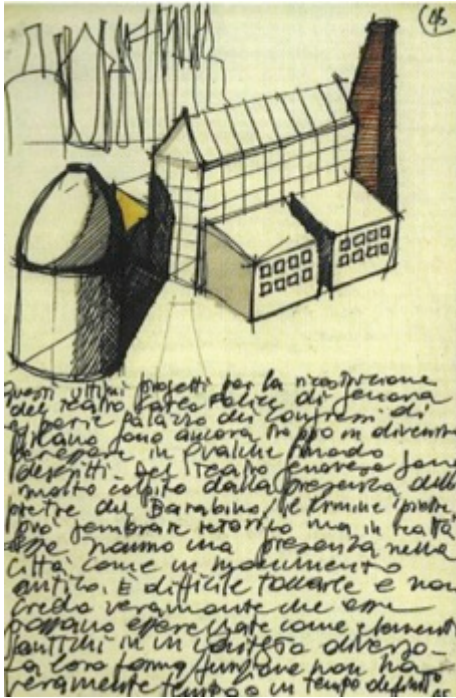 45
Questi ultimi progetti per la ricostruzione
del teatro Carlo Felice di Genova
e per il Palazzo dei Congressi di
Milano sono ancora troppo in divenire
per essere in qualche modo
descritti. Del Teatro genovese sono
molto colpito dalla presenza delle
pietre del Barabino; il termine pietre
può sembrare retorico ma in realtà
esse hanno una presenza nella
città come un monumento
antico. È difficile toccarle e non
credo veramente che esse
possano essere usate come elementi
antichi in un contesto diverso.
La loro forma/funzione non ha
veramente tempo o un tempo definito